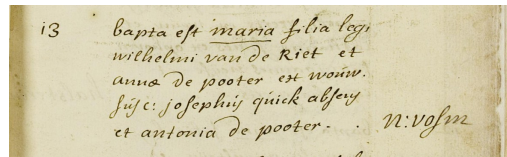 13 bapta est maria filia leg:
wilhelmi van de Riet et
annæ de pooter ex wouw.
susc: josephus quick absens
et antonia de pooter. n: vosm